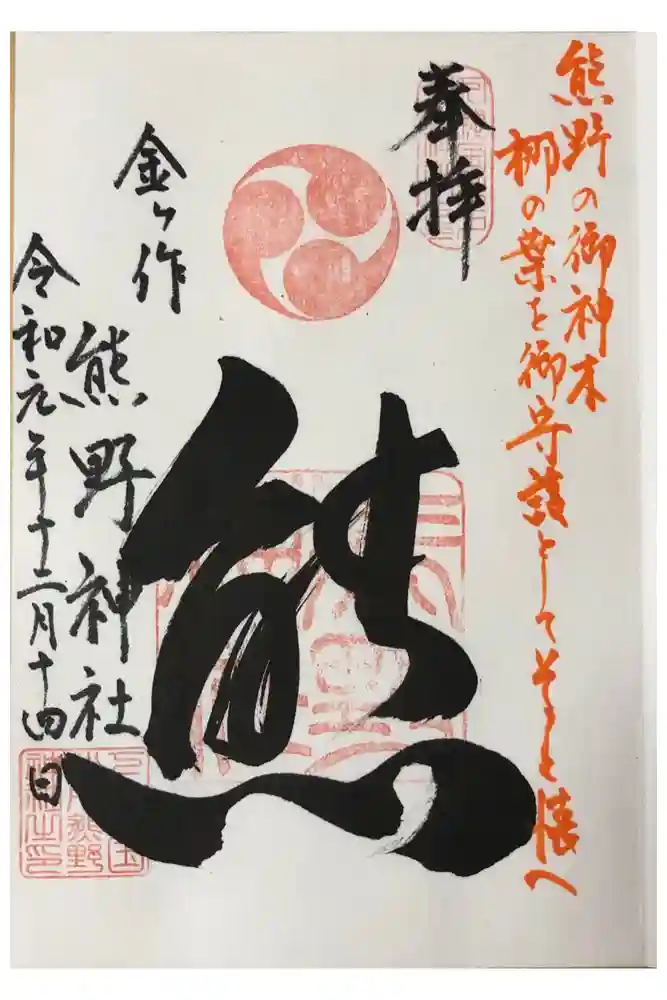 熊野の御神木
梛の葉を御守護としてそっと懐へ
奉拝
熊
金ヶ作
熊野神社
令和元年十二月十四日